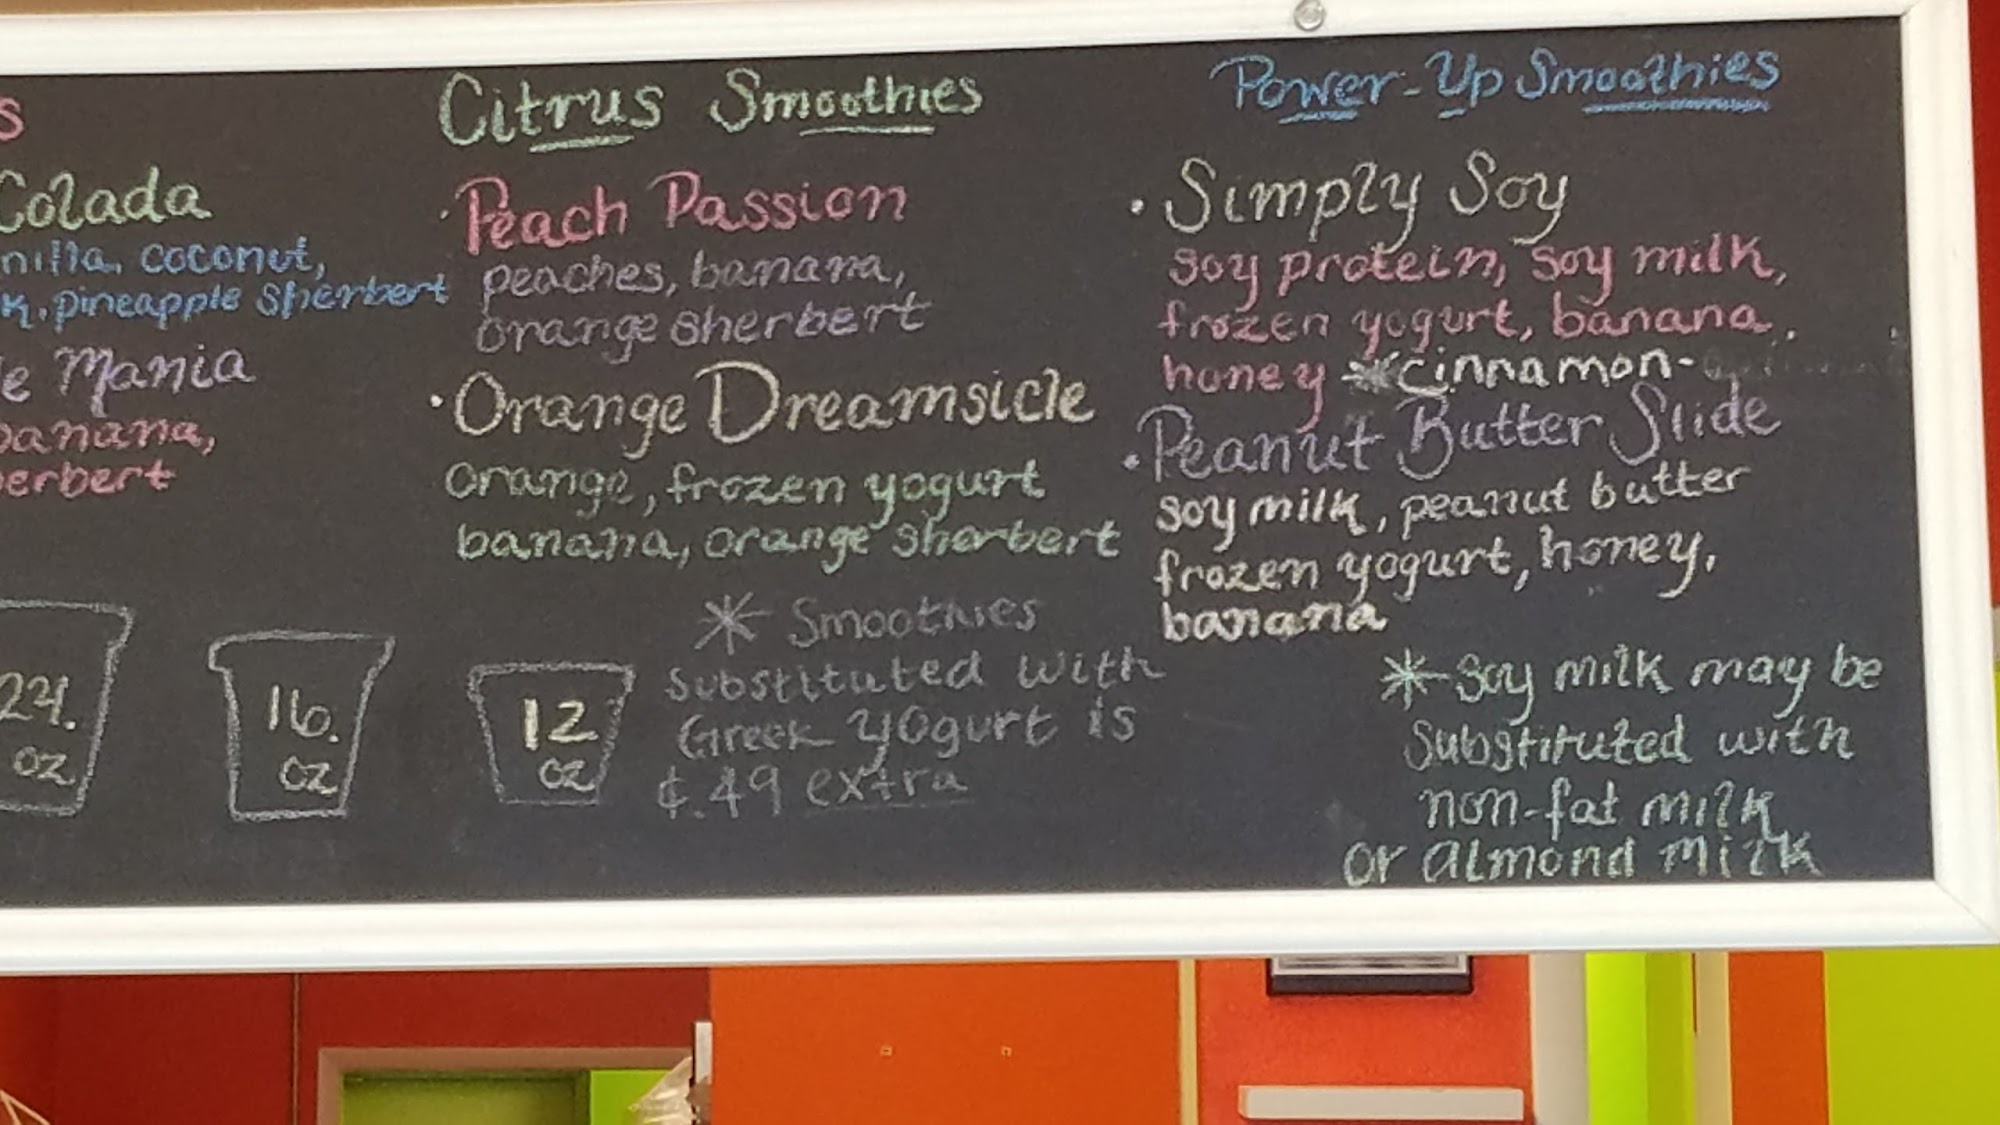 s
Colada
nilla, coconut,
k, pineapple Sherbert
le Mania
banana,
erbert
24.
oz
16.
oz
12
oz
Citrus Smoothies
·Peach Passion
peaches, banana,
orange sherbert
·Orange Dreamsicle
orange, frozen yogurt
banana, orange sherbert
* Smoothies
Substituted with
Greek yogurt is
¢.49 extra
Power-Up Smoothies
·Simply Soy
soy protein, soy milk,
frozen yogurt, banana,
honey *cinnamon-
·Peanut Butter Slide
soy milk, peanut butter
frozen yogurt, honey,
banana
*Soy milk may be
Substituted with
non-fat milk
or almond milk